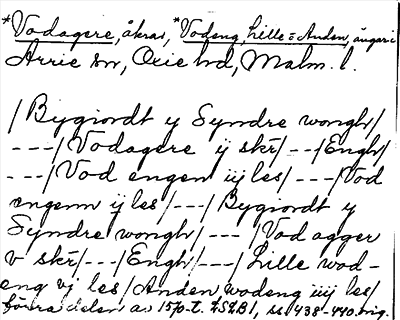 *Vodagere, åkrar, *Vodeng, Lille = Anden, ängar i
Arrie sn, Oxie hd, Malm. l.
/Bygiordt y Syndre wongh/
---/Vodagere ij skr/---/Engh/
---/Vod engen iij les/---/Vod
engenn ij les/---/Bygiordt y
Syndre wongh/---/Vod agger
v skr/---/Engh/---/Lille wod-
eng vj les/Anden wodeng iiij les/
förra delen av 1570-t. LSLB1, ss 438-440. orig.